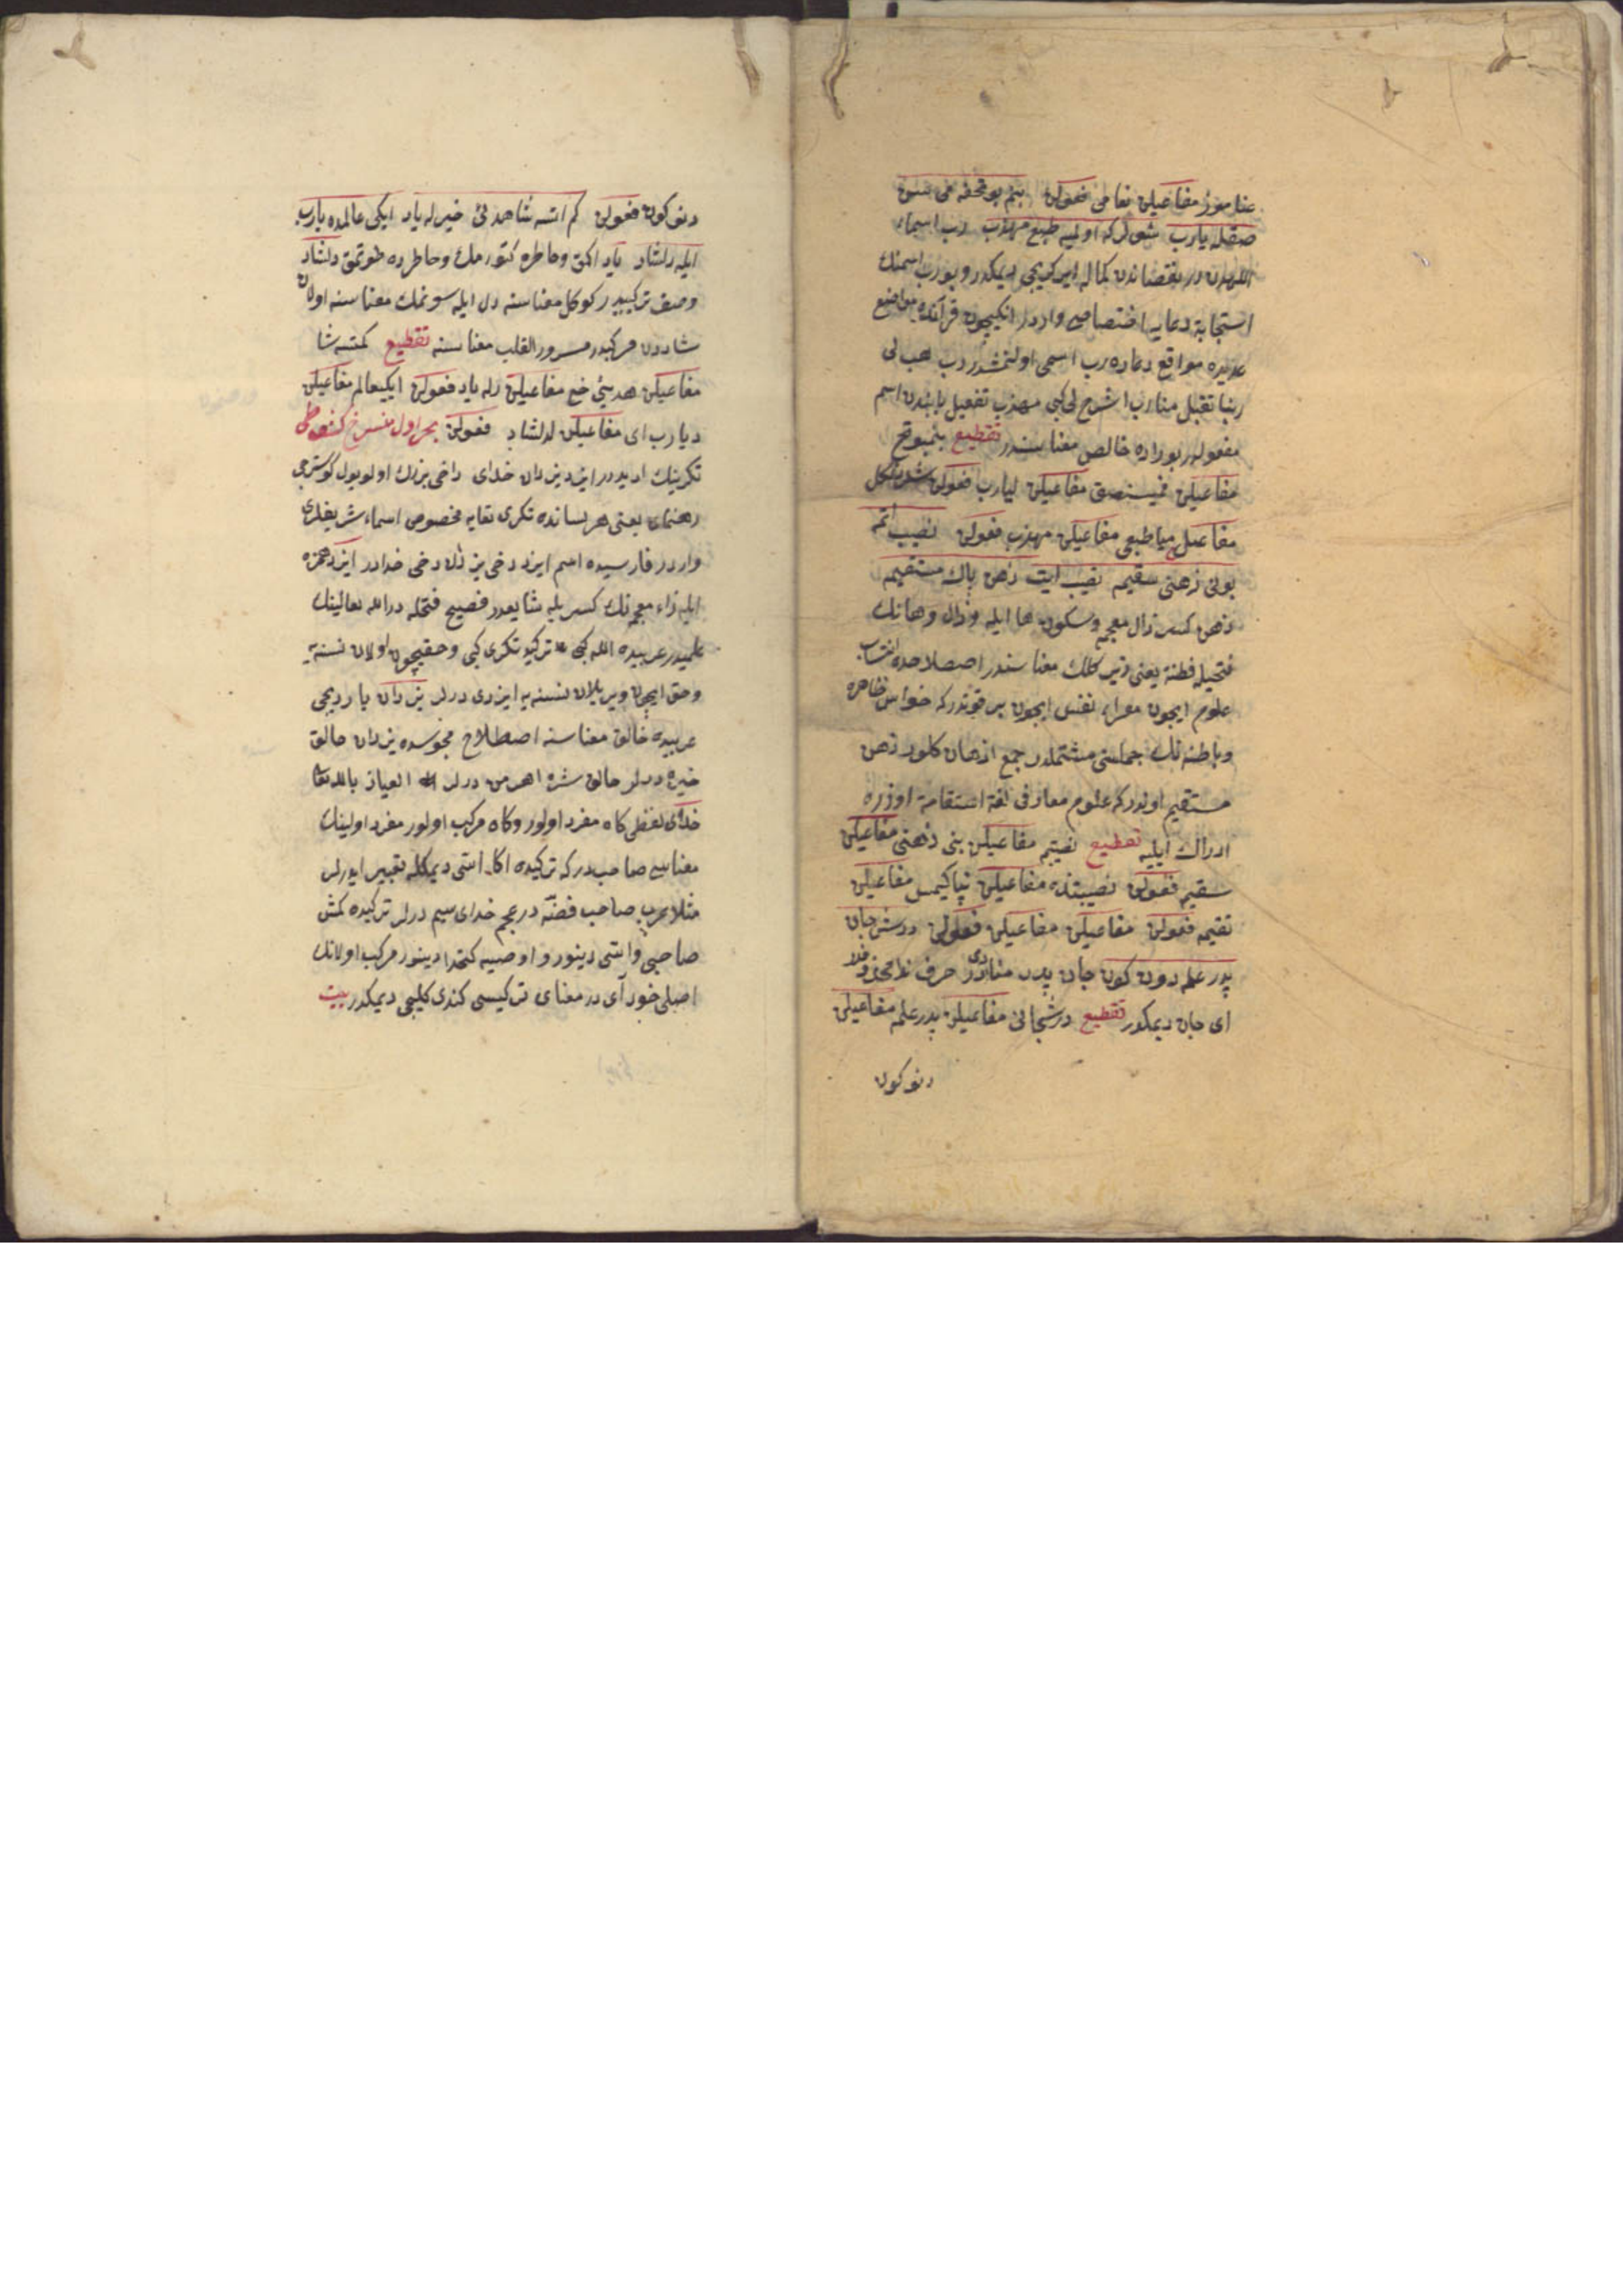 عنا موز مفاعيلن نعامى فعولن بنم بو تحفه مى سن
صقله يارب شول كه اوليه طبع مهذب رب اسماء
اللهدن در نقصاندن كماله ايركريجى ديمكدر و بو رب اسمنك
استجابة دعايه اختصاصى واردر انكيچون قرآنده مواضع
عديده مواقع دعاده رب اسمى اولنمشدر رب هب لى
ربنا تقبل منا رب اشرح لى كبى مهذب تفعيل بابندن اسم
مفعولدر بوراده خالص معناسندر تقطيع بنمبوتح
مفاعيلن فميسنصق مفاعيلن ليارب فعولن
مفاعيلن مياطبعى مفاعيلن مهذب فعولن نصيب اتمه
بونى ذهنى سقيمه نصيب ايت ذهن پاك مستقيمه
ذهن كسر ذال معجمه و سكون ها ايله و ذال و هانك
فتحيله فطنة يعنى زيركلك معناسندر اصطلاحده اكتساب
علوم ايچون معرا، نفس ايچون بر قوتدر كه حواس ظاهره
و باطنه نك جمله سنى مشتملدر جمع اذهان كلور ذهن
مستقيم اولدر كه علوم معارفى لغة استقامة اوزره
ادراك ايليه تقطيع نصيتم مفاعيلن بنى ذهنى مفاعيلن
سقيم فعولن نصيبتذه مفاعيلن نپاكيمس مفاعيلن
تقيمه فعولن مفاعيلن مفاعيلن فعولن درش جان
پدر علمه دون كون جان پدر منادى در حرف ندا محذوفدر
اى جان ديمكدر تقطيع درشجانى مفاعيلن پدر علمه مفاعيلن
دنو كون
دنو كون فعولن كم اتسه شاهدئ خير له ياد ايكى عالمده يارب
ايله دلشاد ياد اكمق و خاطره كتورمك و خاطرده طوتمق دلشاد
وصف تركيبيدر كوكل معناسنه دل ايله سونمك معناسنه اولان
شاددن مركبدر مسرور القلب معناسنه تقطيع كمتسه شا
مفاعيلن هديئ خير مفاعيلن رله ياد فعولن ايكيعالم مفاعيلن
ديارب اى مفاعيلن لدلشاد فعولن بحر اول منسرح
تكرينك اديدر ايزد يزدان خداى داخى بزرك اولو يول كوسترجى
رهنماى يعنى هر لسانده تكرى تعايه مخصوص اسماء شريفلرى
واردر فارسيده اسم ايزد دخى يزدان دخى خدادر ايزد همزه
ايله زاء معجمه نك كسريله شايعدر فصيح فتحله در الله تعالينك
علميدر عربيده الله كبى تركيده تكرى كبى و حقيچون اولان نسنه يه
و حق ايچون ويريلان نسنه يه ايزدى ديرلر يزدان يارديجى
عربيده خالق معناسنه اصطلاح مجوسده يزدان خالق
خيره ديرلر خالق شره اهرمن ديرلر العياذ بالله تعا
خداى لفظى كاه مفرد اولور و كاه مركب اولور مفرد اولينك
معناسى صاحبدر كه تركيده اكا اسى ديمكله تعبير ايدرلر
مثلا عرب صاحب فضه در عجم خداى سيم ديرلر تركيده كمش
صاحبى و اسى دينور و او صيه كتخدا دينور مركب اولانك
اصلى خود آى در معناى تركيبى كندى كليجى ديمكدر بيت